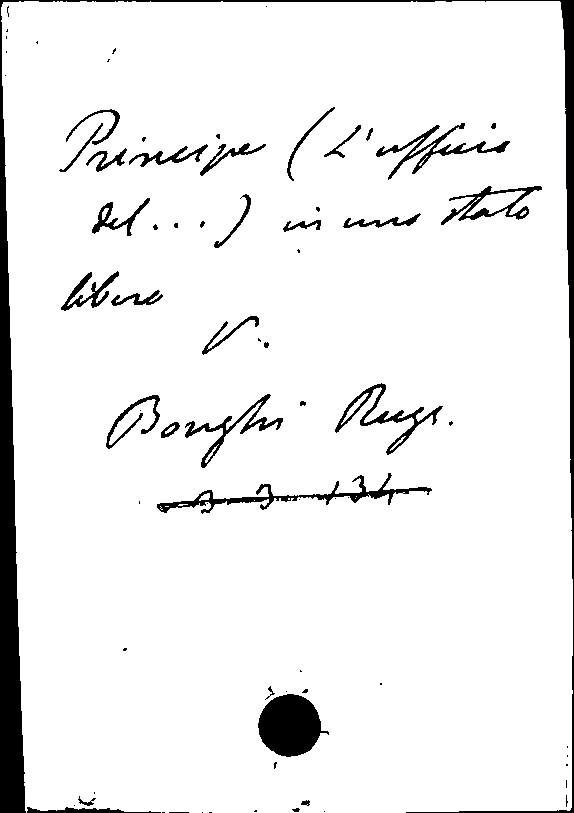 Principe (L'ufficio
del...) in uno stato
libero
V.
Bonghi Rugg.
3 3 134